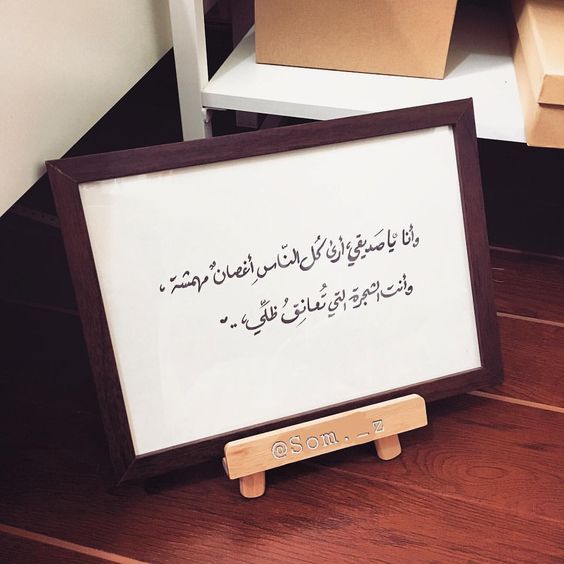 وأنا يا صَديقي، أرىٰ كُل النّاسِ أغصانٌ مهمشة،
وأنت الشجرة التي تُعانِقُ ظلّي، ..
@Som._z